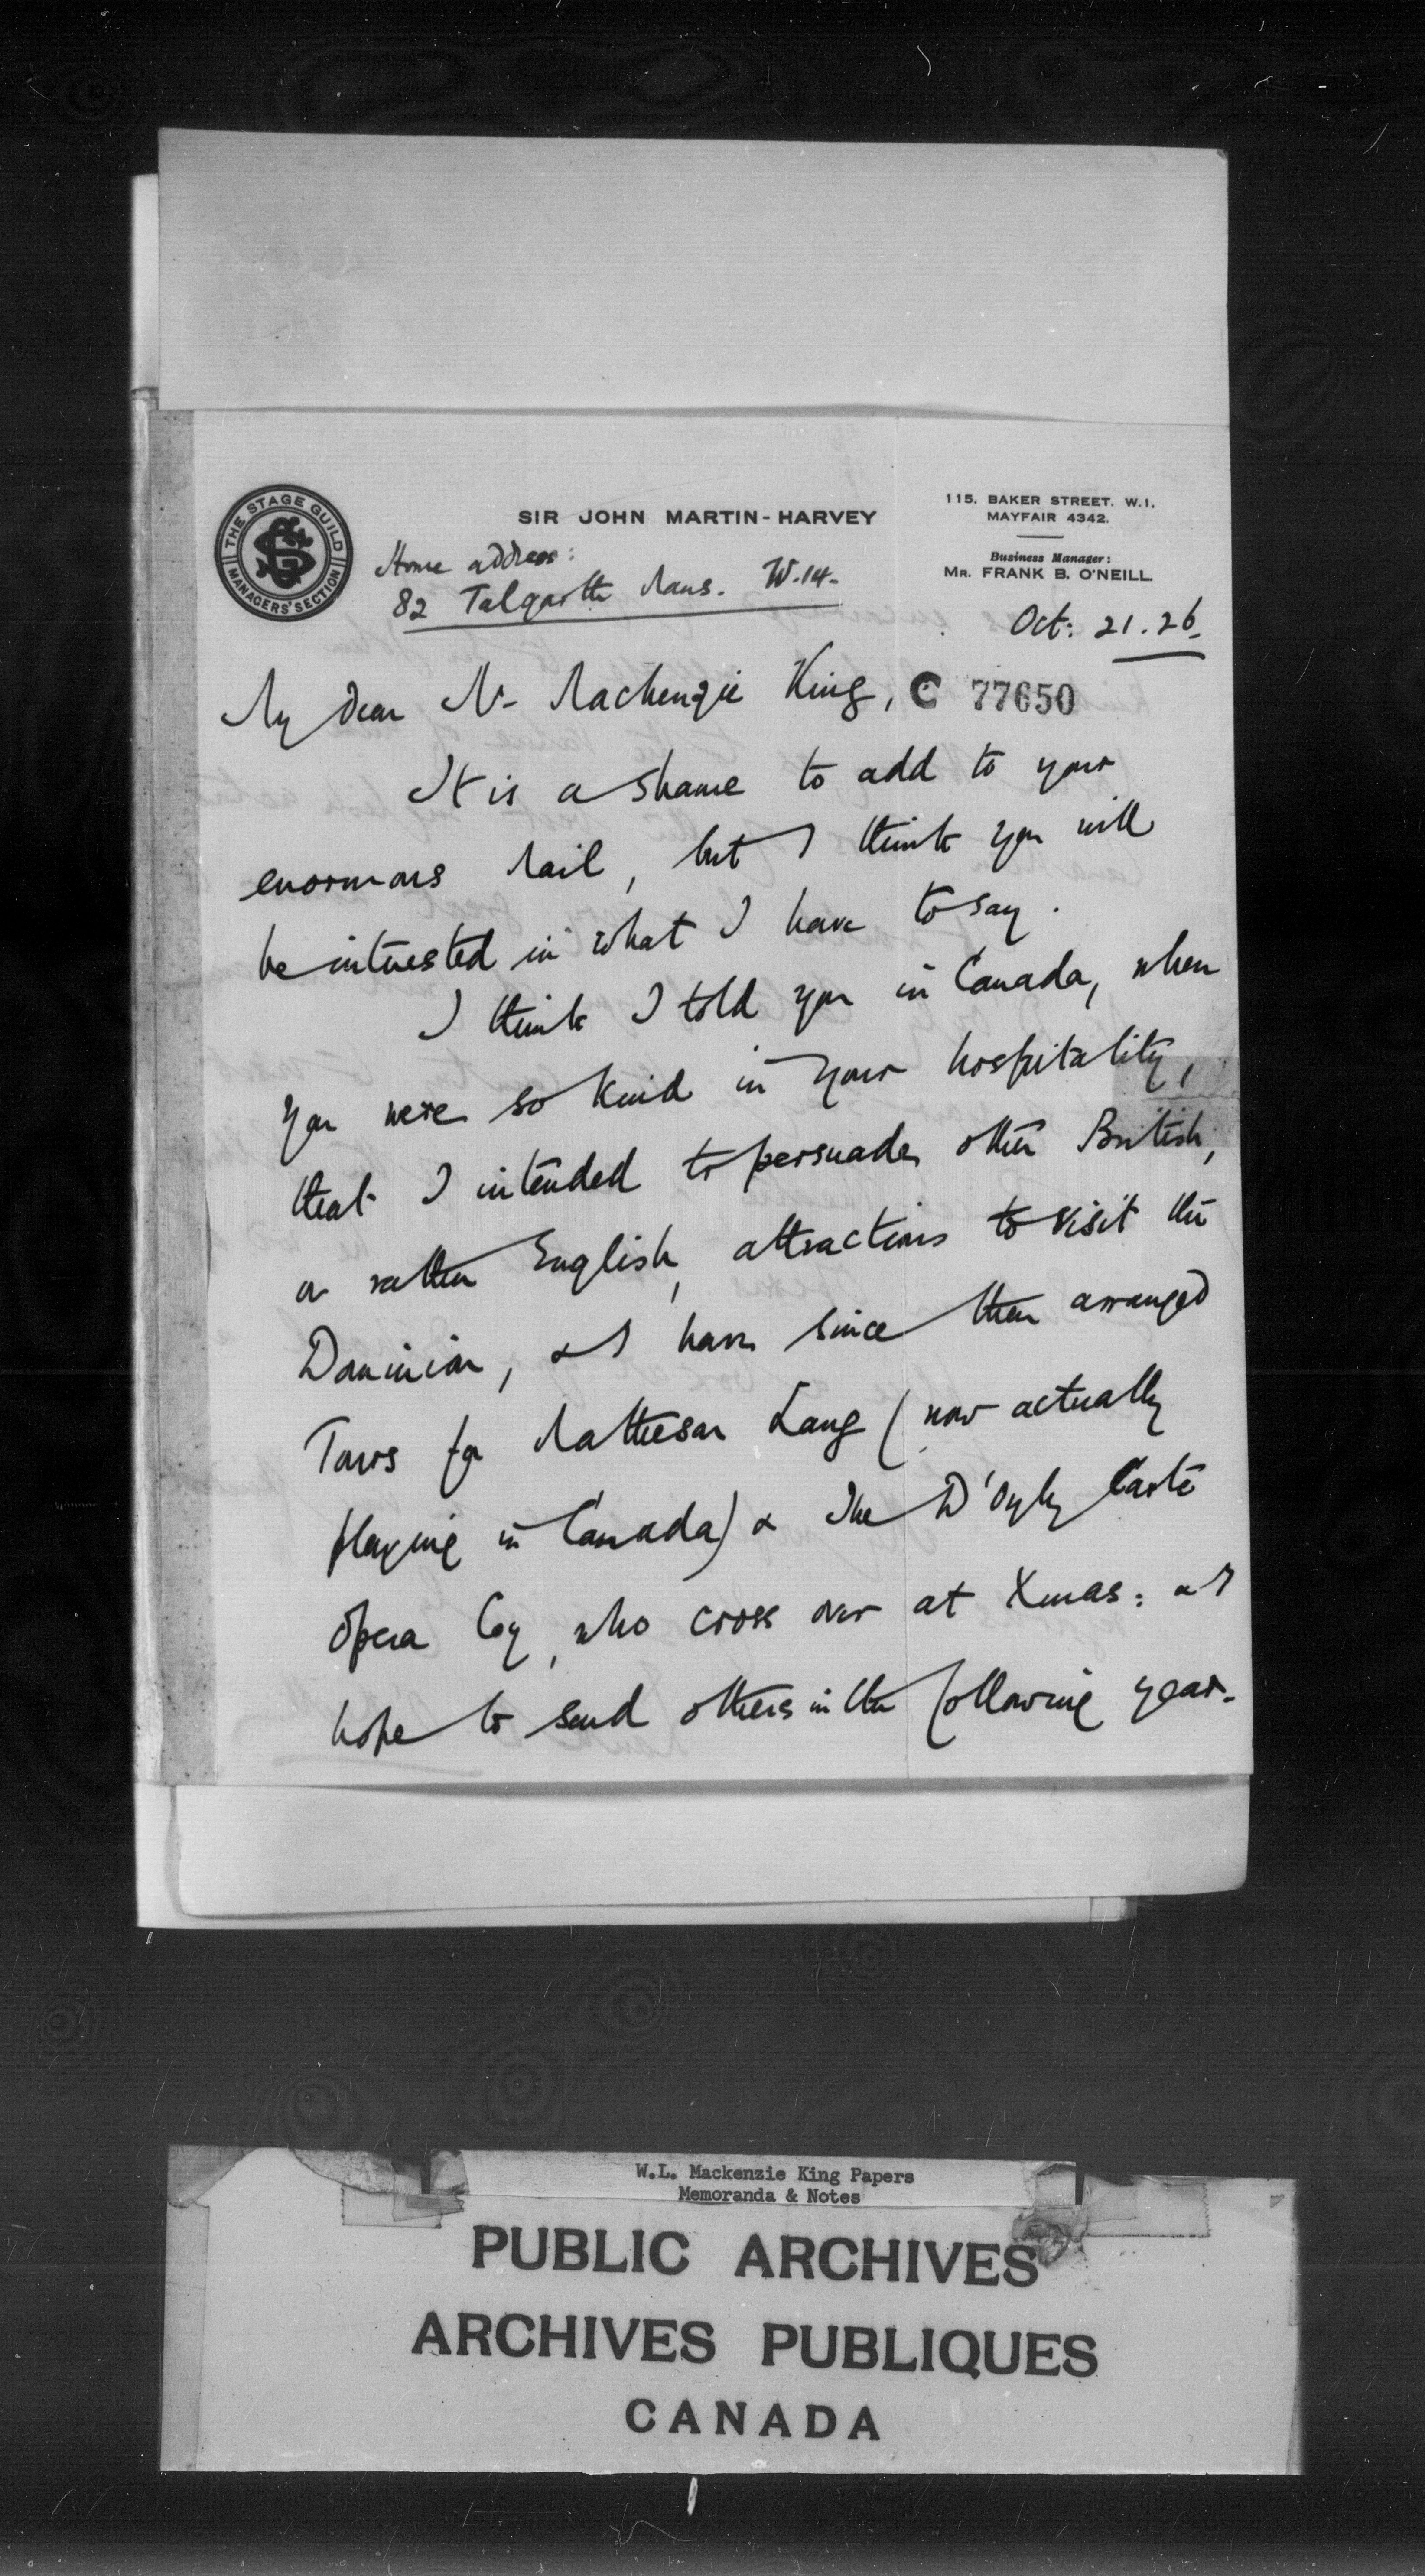 THE STAGE GUILD
MANAGERS' SECTION
SIR JOHN MARTIN-HARVEY
115, BAKER STREET. W.1.
MAYFAIR 4342.
Business Manager:
MR. FRANK B. O'NEILL.
Home address:
82 Talgarth Mans. W.14.
Oct: 21.26.
My dear Mr Mackenzie King,
C 77650
It is a shame to add to your
enormous Mail, but I think you will
be interested in what I have to say.
I think I told you in Canada, when
you were so kind in your hospitality,
that I intended to persuade other British,
or rather English, attractions to visit the
Dominion, & I have since then arranged
Tours for Matheson Lang (now actually
playing in Canada) & The D'Oyly Carte
Opera Coy, who cross over at Xmas: & I
hope to send others in the following year.
W.L. Mackenzie King Papers
Memoranda & Notes
PUBLIC ARCHIVES
ARCHIVES PUBLIQUES
CANADA